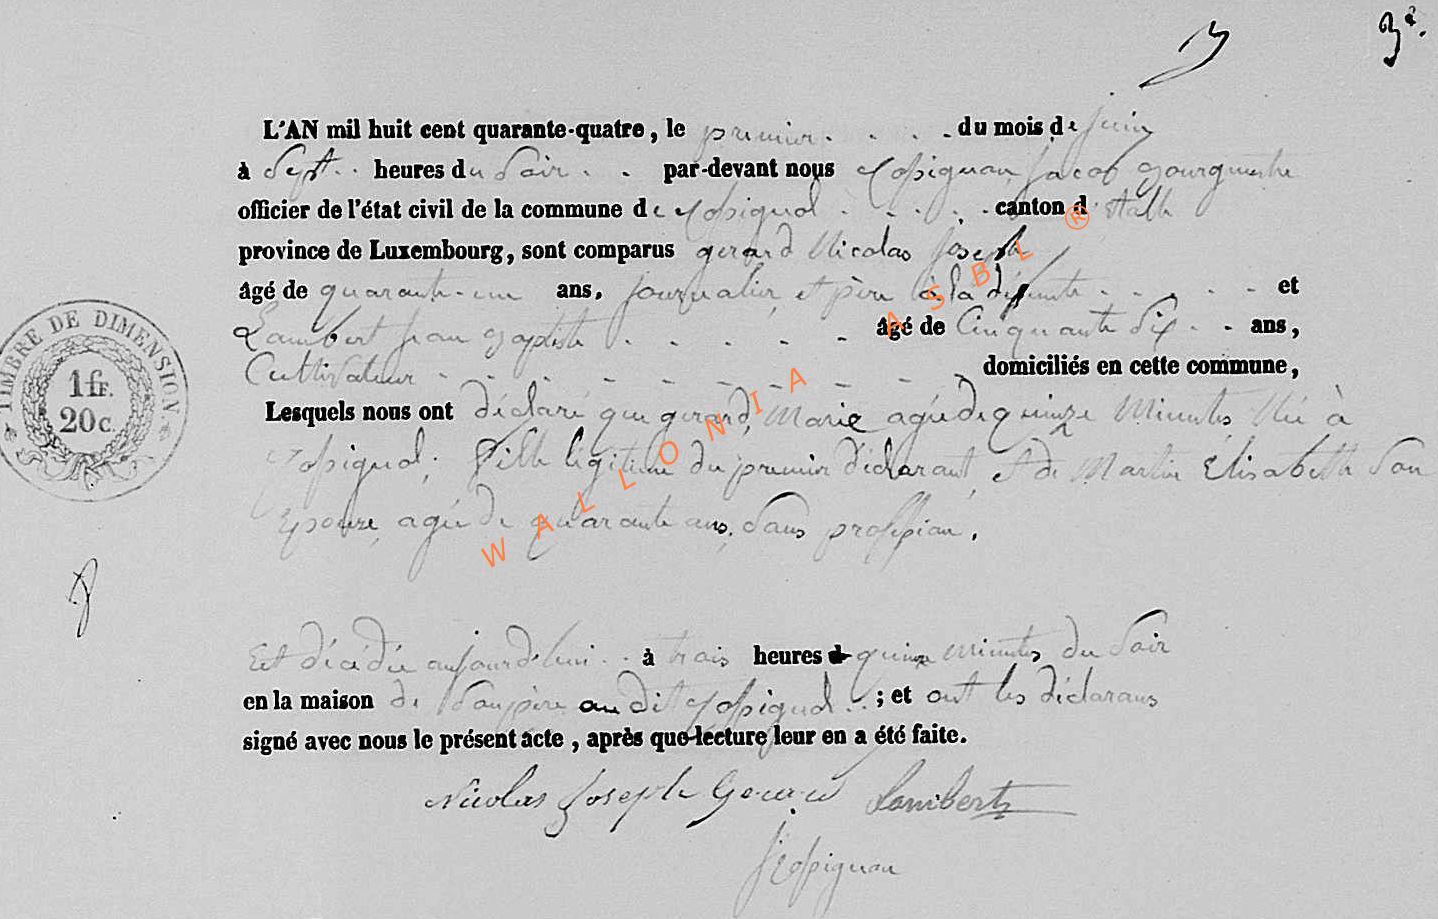 3e.
L'AN mil huit cent quarante-quatre, le premier . . . . du mois de Juin
à Sept . . heures du Soir . . par-devant nous Jacob Bourguestre
officier de l'état civil de la commune de . . . . canton d
province de Luxembourg, sont comparus gerard Nicolas Joseph
âgé de quarante-un ans, journalier et père à la défunte . . . . . et
Lambert jean Baptiste . . . . . âgé de Cinquante Six . . ans,
Cultivateur domiciliés en cette commune,
Lesquels nous ont déclaré que gerard, Marie agée de quinze Minutes Née à
Fille légitime du premier déclarant, et de Martin Elisabeth Son
Epouze, agée de quarante ans, Sans profession.
Est décédée aujourd'hui . . à trois heures d quinze Minutes du Soir
en la maison de Son père au dit ; et ont les déclarans
signé avec nous le présent acte, après que lecture leur en a été faite.
Nicolas Joseph Gerard Lambert
TIMBRE DE DIMENSION.
1 fr.
20 c.
WALLONIA ASBL ®